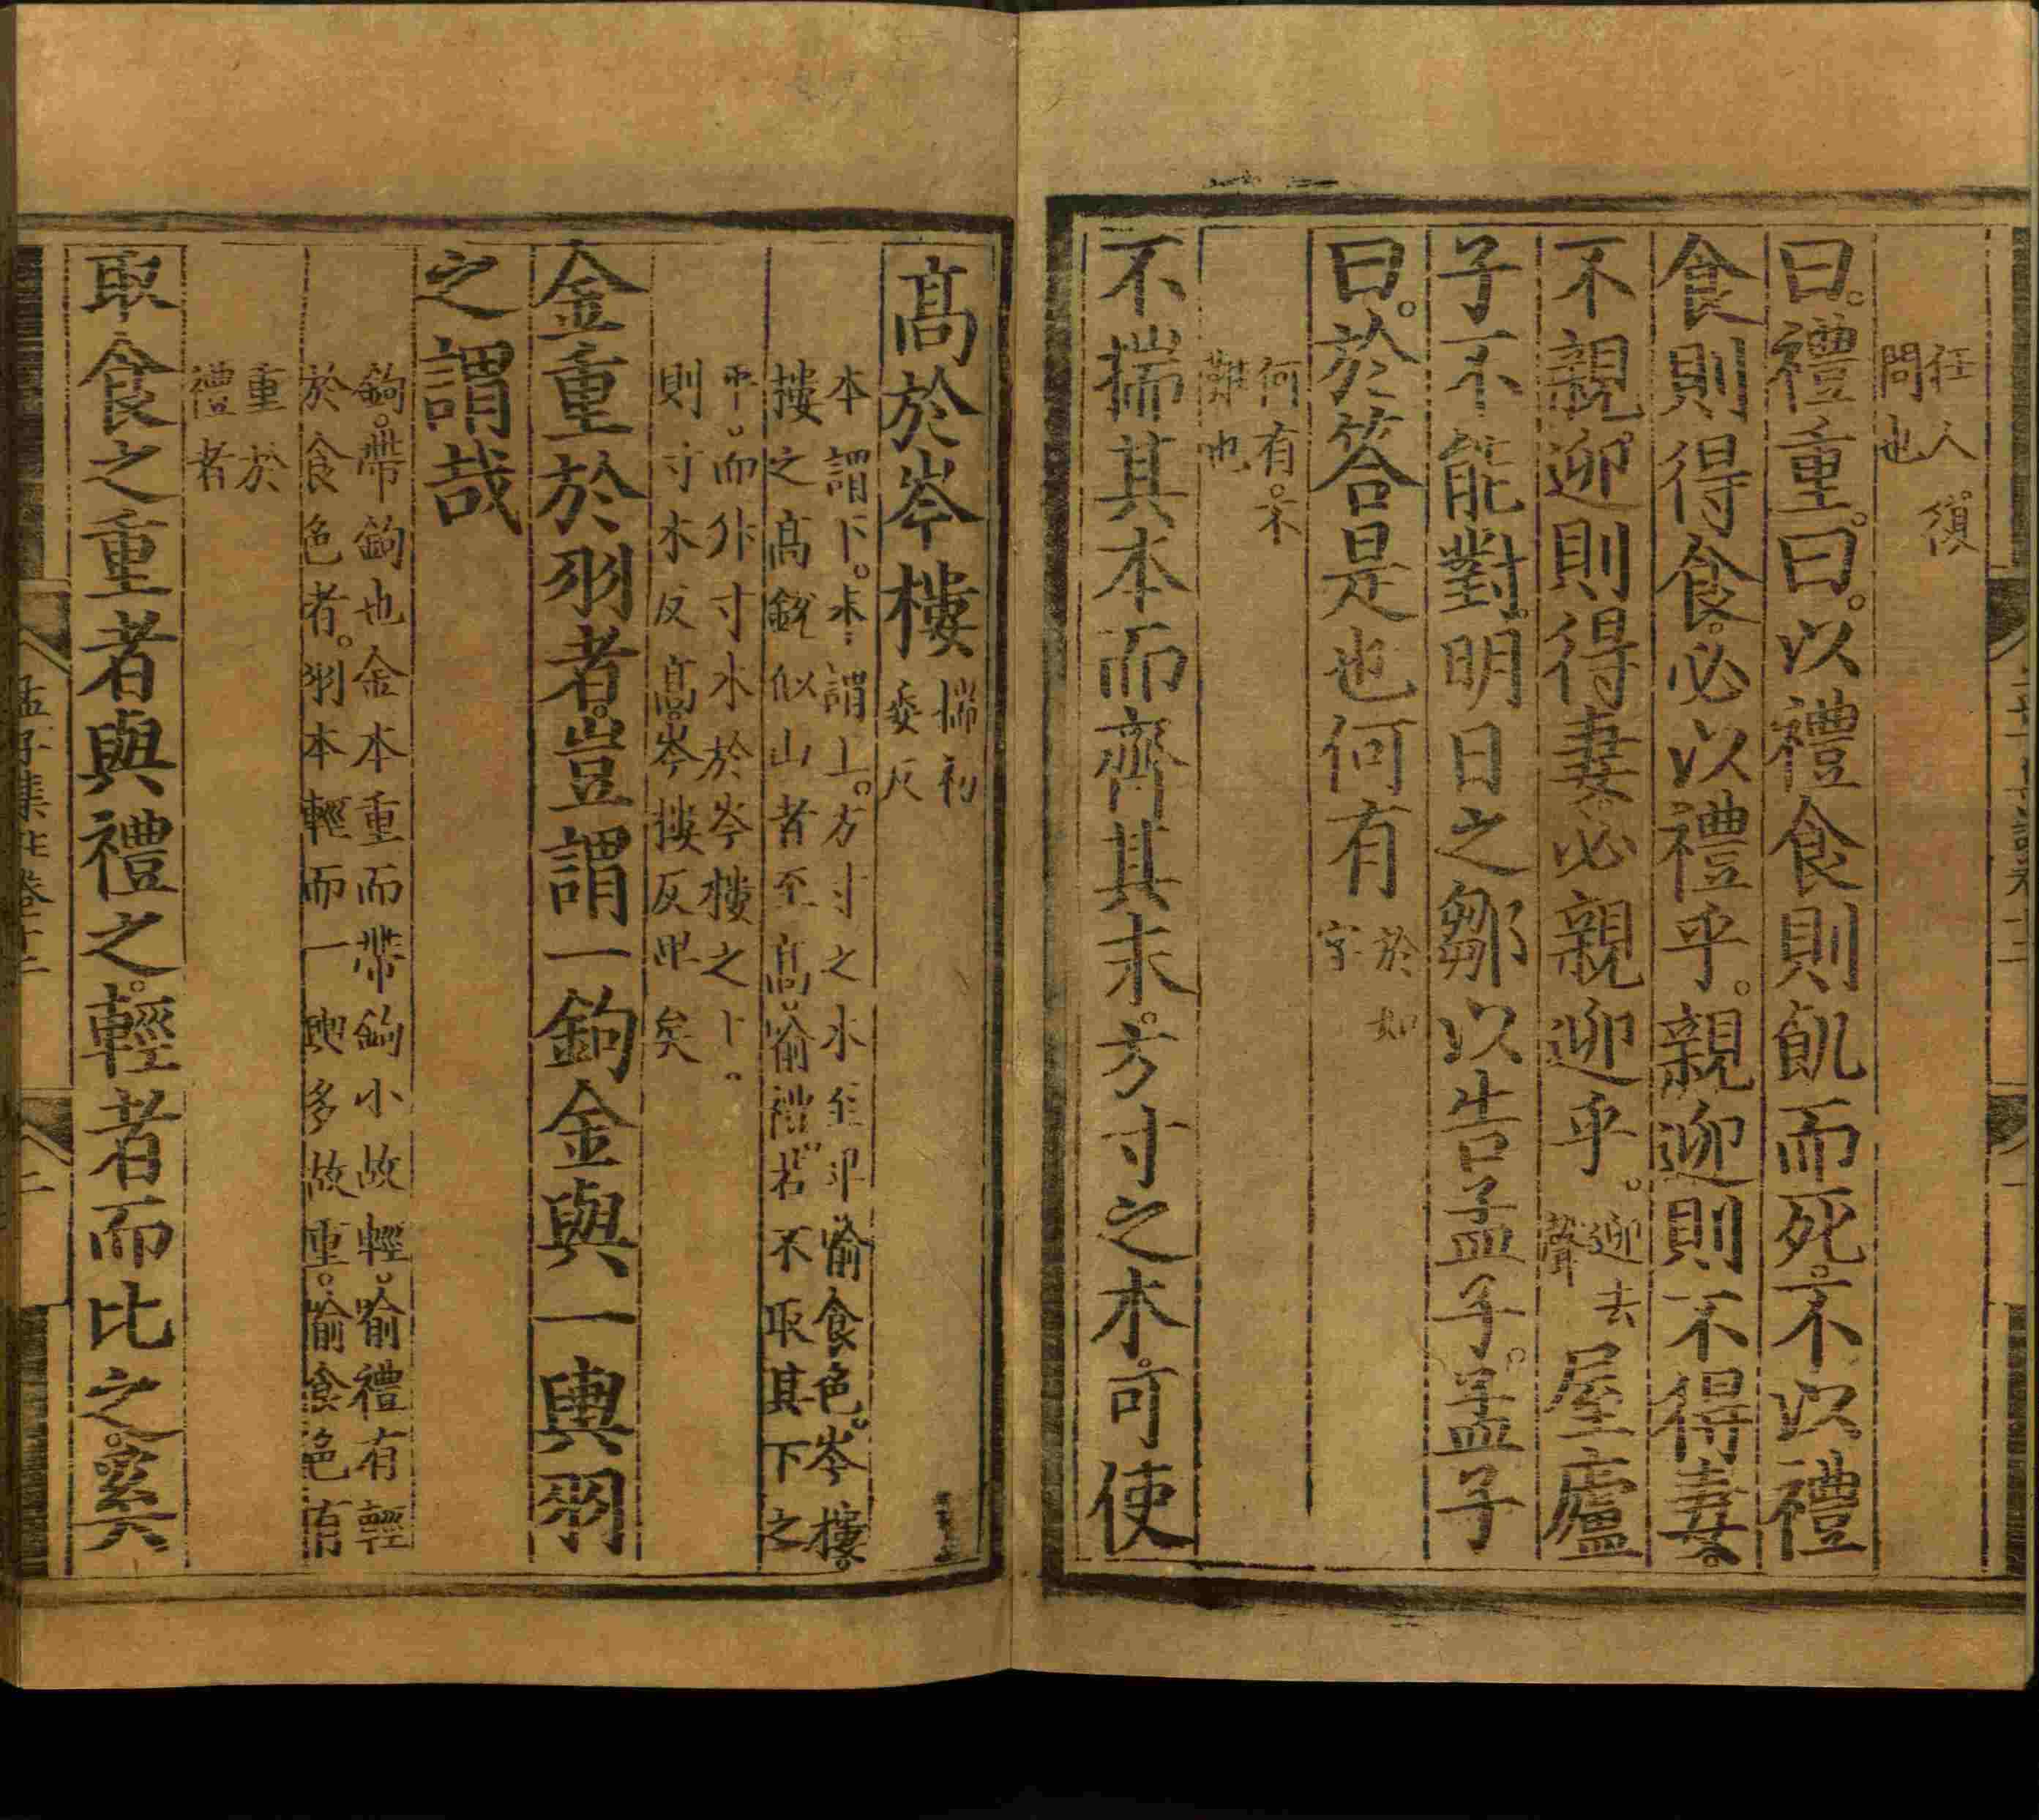 任人復
問也
曰。禮重。曰。以禮食則飢而死。不以禮
食則得食。必以禮乎。親迎則不得妻。
不親迎則得妻。必親迎乎。
迎去
聲
屋廬
子不能對。明日之鄒以告孟子。孟子
曰。於答是也何有
於如
字
何有。不
難也
不揣其本而齊其末。方寸之木。可使
高於岑樓
揣初
委反
本謂下。末謂上。方寸之木至卑喻食色。岑樓。
樓之高銳似山者至高。喻禮。若不取其下之
平。而升寸木於岑樓之上。
則寸木反高。岑樓反卑矣
金重於羽者。豈謂一鉤金與一輿羽
之謂哉
鉤。帶鉤也金本重而帶鉤小故輕。喻禮有輕
於食色者。羽本輕而一輿多故重。喻食色有
重於
禮者
取食之重者與禮之。輕者而比之。奚
孟子集註卷十二
二